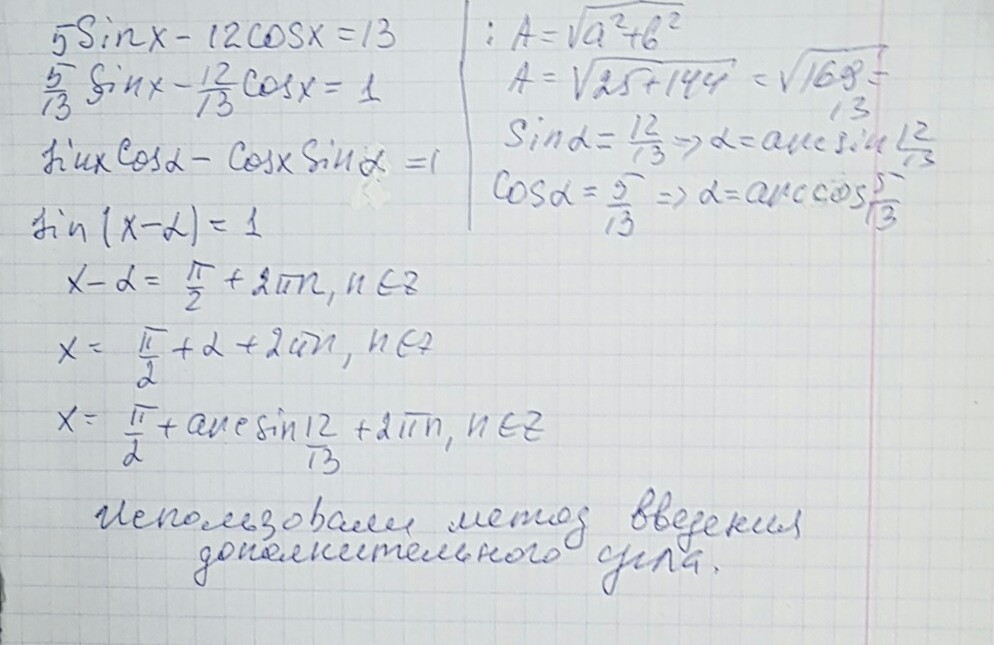 5Sinx - 12cosx = 13
5/13 Sinx - 12/13 Cosx = 1
Sinx Cosα - Cosx Sinα = 1
Sin(x-α) = 1
x-α = π/2 + 2πn, n∈Z
x = π/2 + α + 2πn, n∈Z
x = π/2 + arcsin 12/13 + 2πn, n∈Z
: A = √a²+b²
A = √25+144 = √169 =
13
Sinα = 12/13 => α = arcsin 12/13
Cosα = 5/13 => α = arccos 5/13
Использовали метод введения
дополнительного угла.